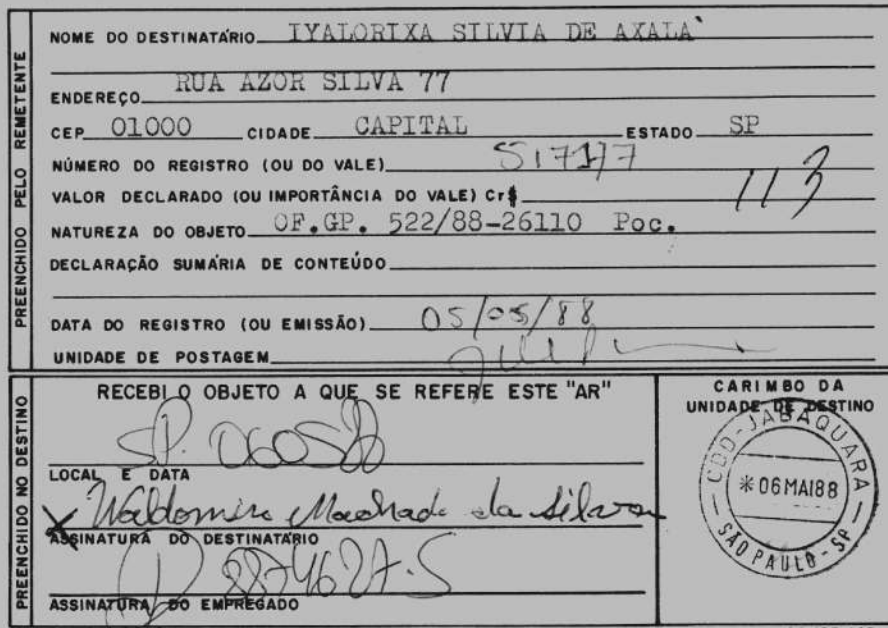 PREENCHIDO PELO REMETENTE
NOME DO DESTINATÁRIO IYALORIXA SILVIA DE AXALA`
ENDEREÇO RUA AZOR SILVA 77
CEP 01000 CIDADE CAPITAL ESTADO SP
NÚMERO DO REGISTRO (OU DO VALE) 517177
VALOR DECLARADO (OU IMPORTÂNCIA DO VALE) Cr$ 113
NATUREZA DO OBJETO OF.GP. 522/88-26110 Poc.
DECLARAÇÃO SUMÁRIA DE CONTEÚDO
DATA DO REGISTRO (OU EMISSÃO) 05/05/88
UNIDADE DE POSTAGEM
PREENCHIDO NO DESTINO
RECEBI O OBJETO A QUE SE REFERE ESTE "AR"
SP. 060588
LOCAL E DATA
X Waldomiro Machado da Silva
ASSINATURA DO DESTINATÁRIO
8874627-5
ASSINATURA DO EMPREGADO
CARIMBO DA
UNIDADE DE DESTINO
CDD-JABAQUARA
*06MAI88
SÃO PAULO-SP